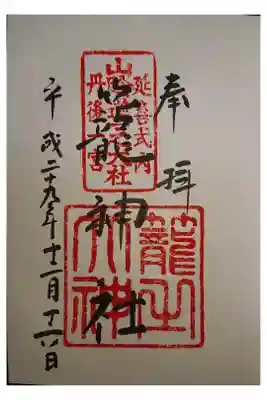 奉拝
延喜式内
大社
丹後一宮
籠神社
籠之
大神
平成二十九年十二月十六日